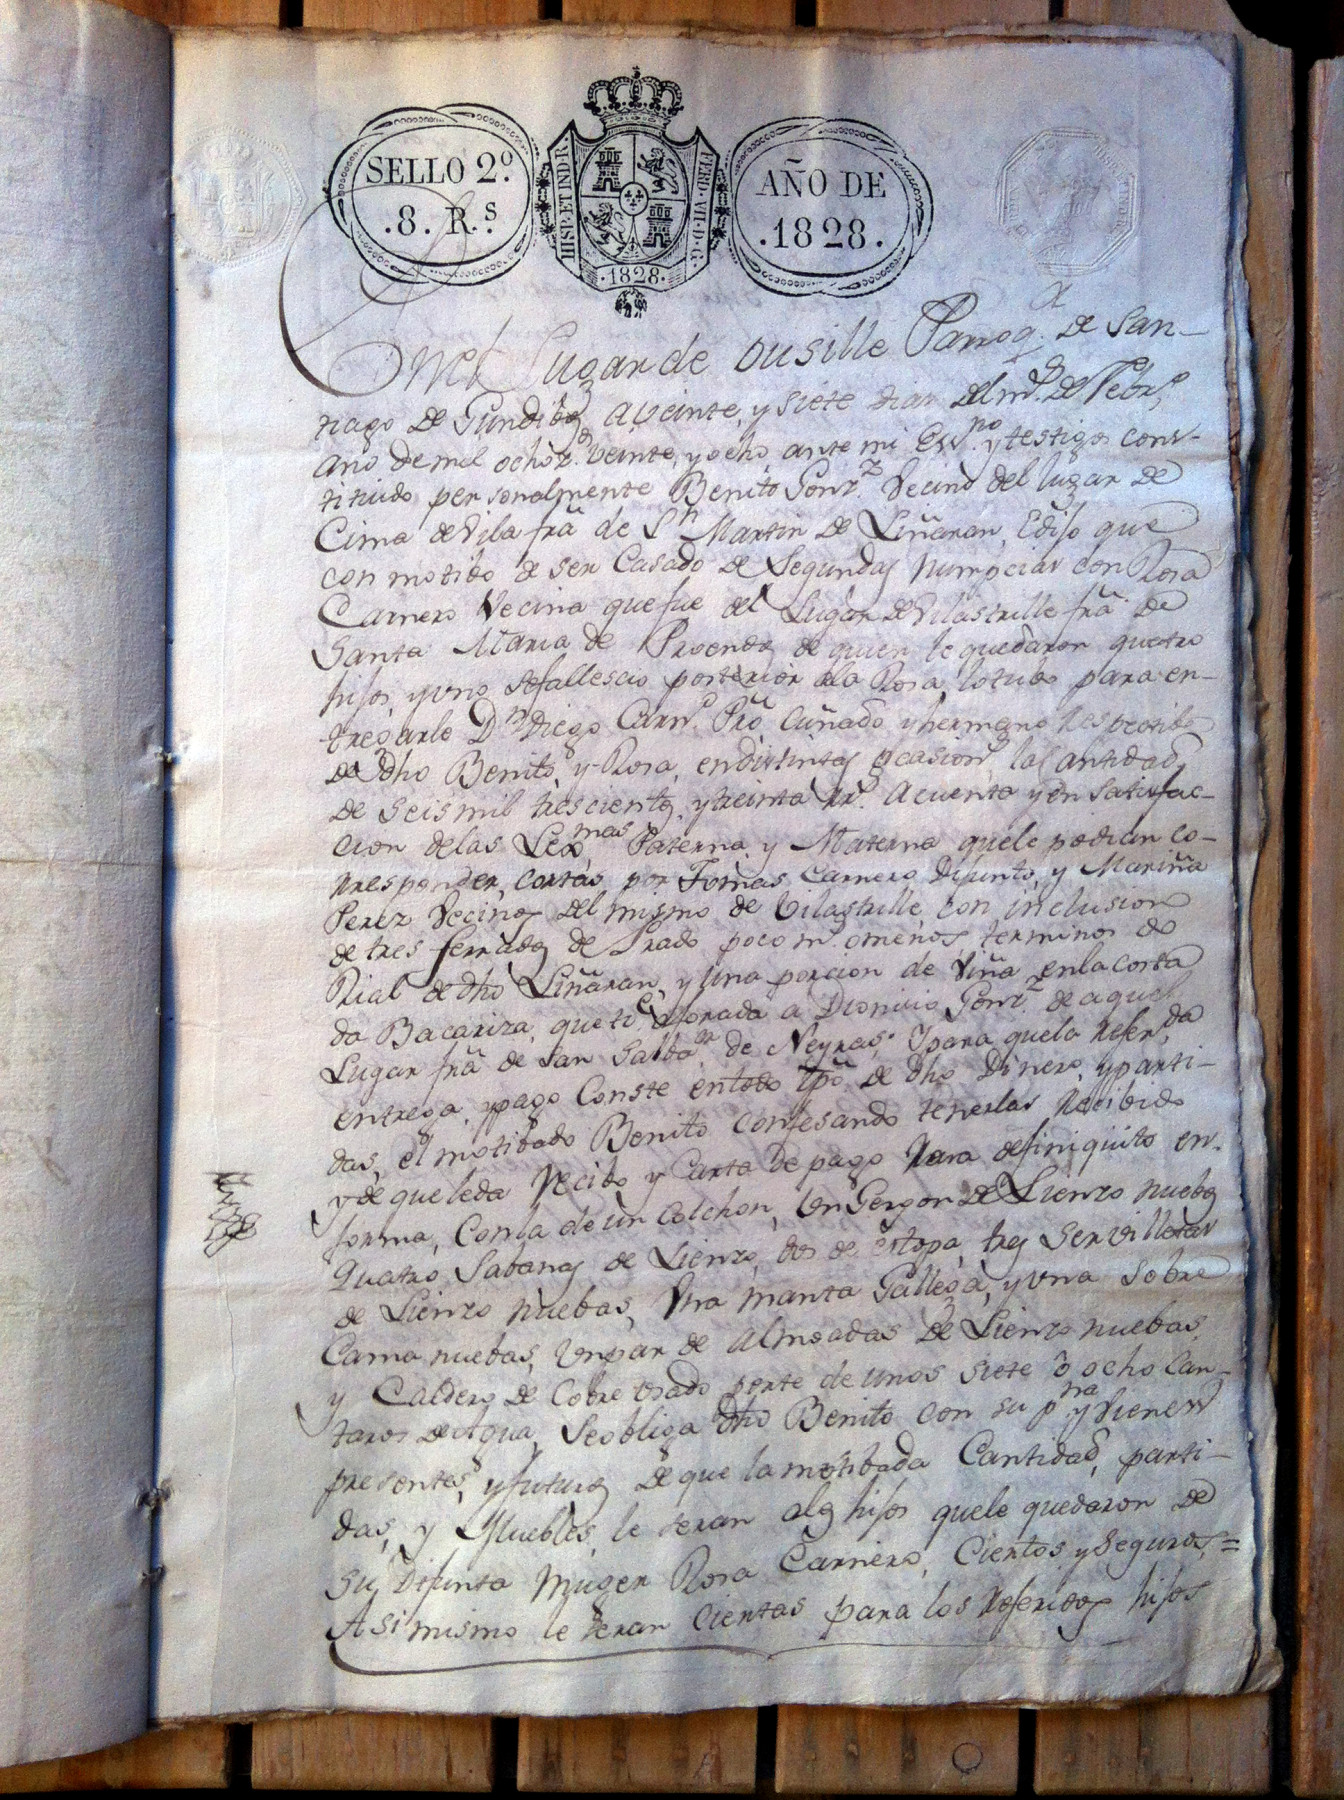 SELLO 2º.
.8. R.s
HISP. ET IND. R.
FERD. VII. D. G.
.1828.
AÑO DE
.1828.
En el Lugar de Ousille Parroq. de San-
tiago de Gundibos a veinte, y siete dias del ms. de Febro.
año de mil ochoz. veinte, y ocho ante mi Essno. y testigos cons-
tituido personalmente Benito Gonrz. Vecino del lugar de
Cima de Vila frâ de Sn Martin de Liñaran, Edijo que
con motibo de ser Casado de Segundas Numpcias con Rosa
Carnero Vecina que fue del Lugar de Vilastrille frâ de
Santa Maria de Proendos de quien le quedaron quatro
hijos, y uno sefallescio posterior ala Rosa, lo tubo para en-
tregarle Dn Diego Carno. Prô Cuñado y hermano respectibo
de dho Benito, y Rosa, en distintas ocasions. las cantidads
de seis mil trescientos, y treinta Rrs. a cuenta y en satisfac-
cion de las Lexmas Paterna, y Materna que le podian co-
rresponder, por Tomas Carnero Difunto, y Mariña
Perez Vecinos del mismo de Vilastrille, con inclusion
de tres ferrados de Prado poco ms. o menos, terminos do
Rial de dho Liñaran, y una porcion de Viña en la costa
da Bacariza, que tie. aforada a Dionisio Gonrz. de aquel
Lugar frâ de San Salbar. de Neyras. Ypara que la referda
entrega, y pago Conste en todo tpô de dho Dinero, y parti-
das, el motibado Benito confesando tenerlas Recibido
y de que le da Recibo y Carta de pago para definiquito en
forma, Con la de un Colchon, Un Gergon de Lienzo nuebos
Quatro Sabanas de Lienzo, dos de estopa, tres Servilletas
de Lienzo nuebas, Una manta Gallega, y una sobre
Cama nuebas, Un par de Almoadas de Lienzo nuebas,
y Caldero de Cobre usado porte de unos siete ô ocho Can-
taros de Agua, Se obliga dho Benito con su pna. y Vienes
presentes, y futuros de que la motibada Cantidad, parti-
das, y Muebles, le seran a los hijos que le quedaron de
su Difunta Muger Rosa Carnero, Ciertos y Seguros, =
Asi mismo le seran cientas para los Referidos hijos